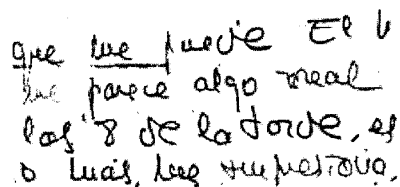 que me puede El
me parece algo real
las 8 de la tarde, es
o más, muy